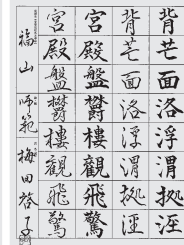 背芒面洛浮渭拠涇
背芒面洛浮渭拠涇
宮殿盤欝樓觀飛驚
宮殿盤欝樓觀飛驚
福山
師範
梅田